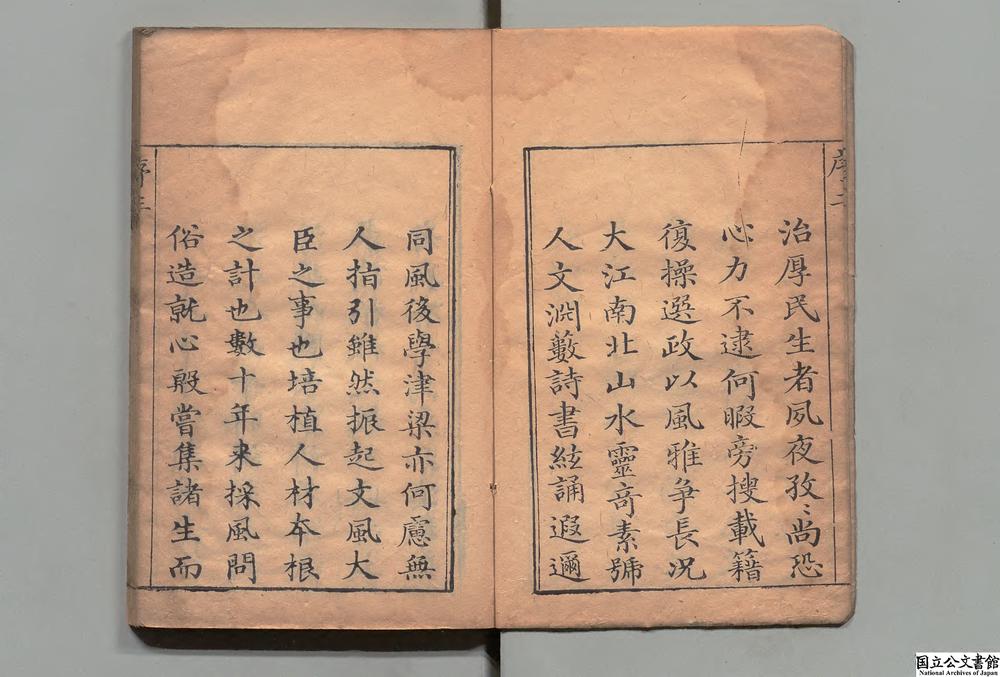 序二
治厚民生者夙夜孜〻尚恐
心力不逮何暇旁搜載籍
復操選政以風雅争長况
大江南北山水靈竒素號
人文淵藪詩書絃誦遐邇
同風後學津梁亦何慮無
人指引雖然振起文風大
臣之事也培植人材夲根
之計也數十年来採風問
俗造就心殷嘗集諸生而
序三
国立公文書館
National Archives of Japan